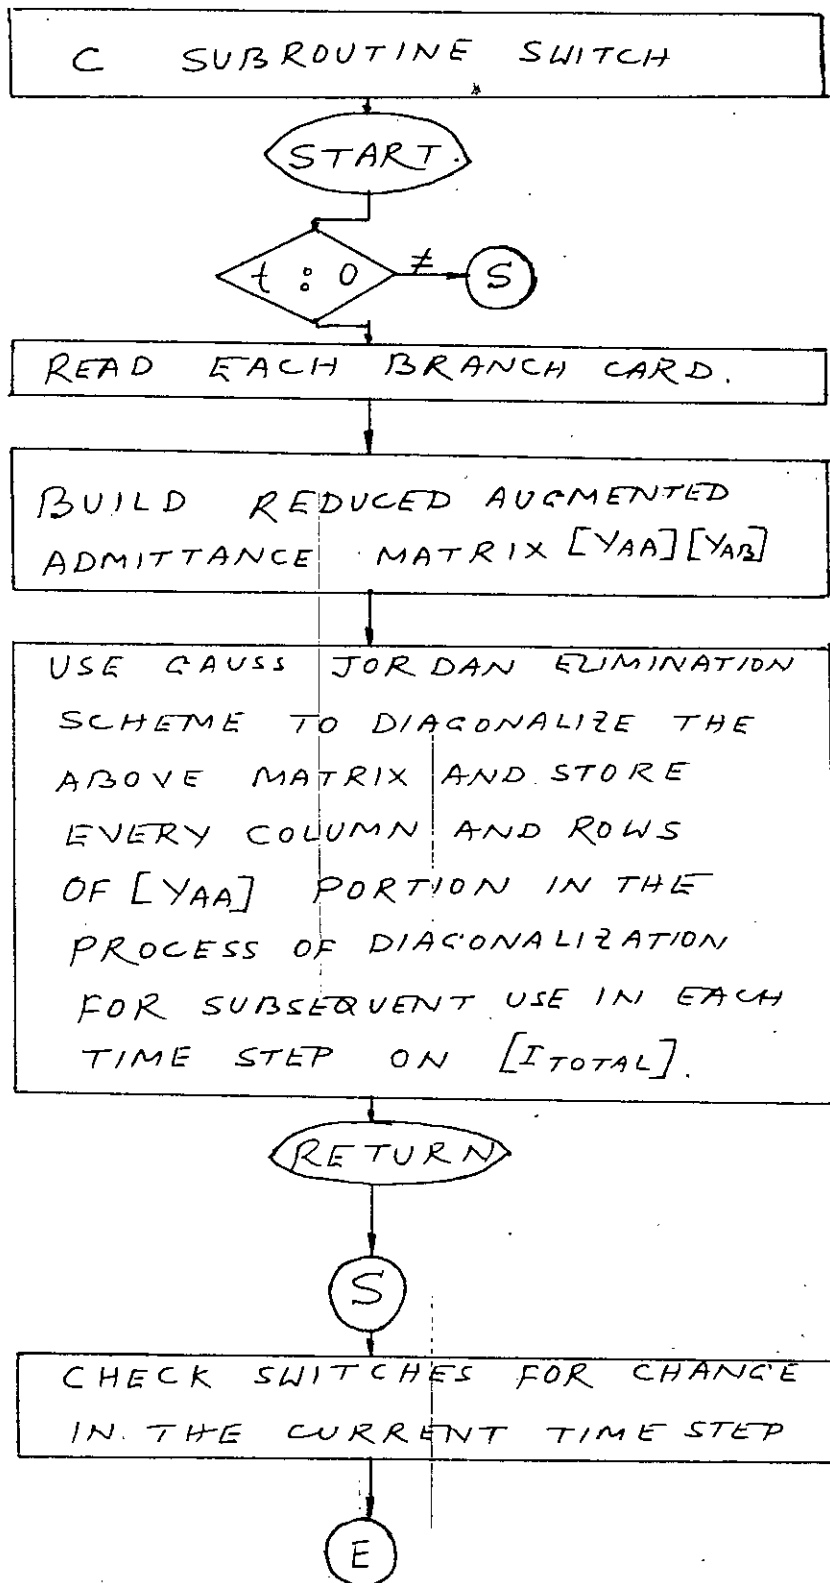 C SUBROUTINE SWITCH
START.
t : 0 ≠ S
READ EACH BRANCH CARD.
BUILD REDUCED AUGMENTED
ADMITTANCE MATRIX [YAA][YAB]
USE GAUSS JORDAN ELIMINATION
SCHEME TO DIAGONALIZE THE
ABOVE MATRIX AND STORE
EVERY COLUMN AND ROWS
OF [YAA] PORTION IN THE
PROCESS OF DIAGONALIZATION
FOR SUBSEQUENT USE IN EACH
TIME STEP ON [ITOTAL].
RETURN
S
CHECK SWITCHES FOR CHANGE
IN THE CURRENT TIME STEP
E